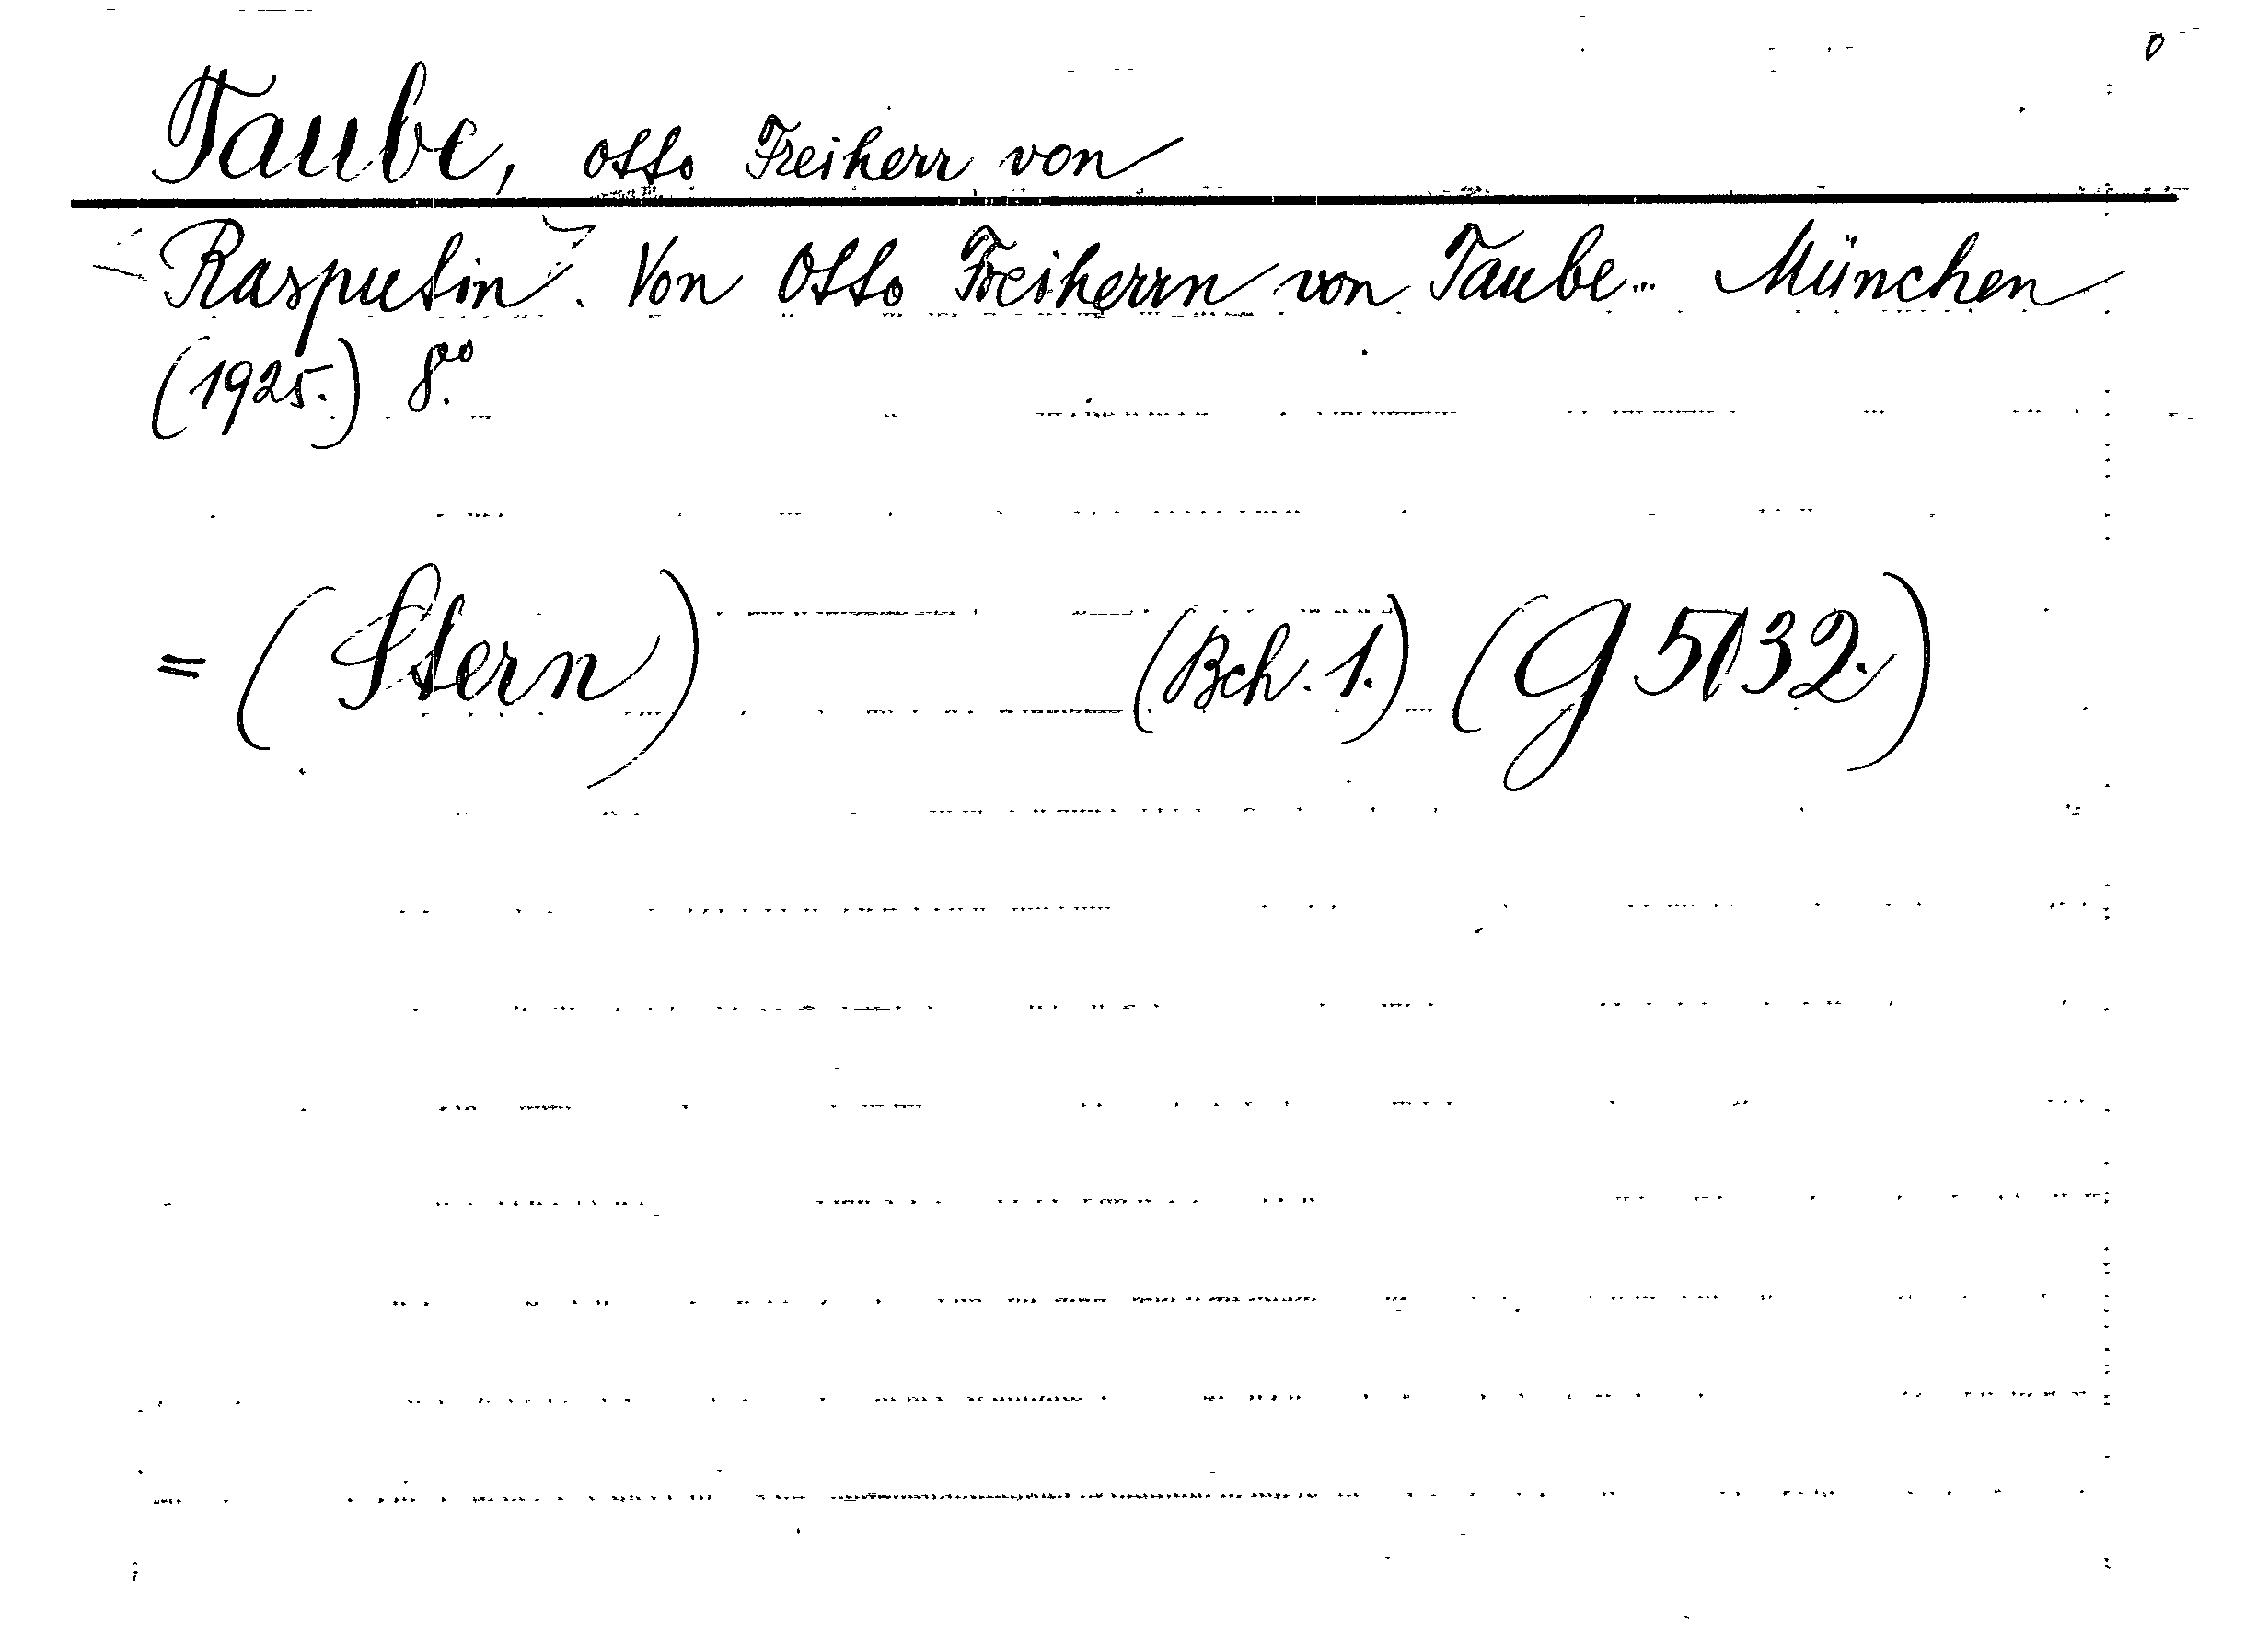 Taube, Otto Freiherr von
Rasputin. Von Otto Freiherrn von Taube... München
(1925.) 8.°
= (Stern) (Bch. 1.) (G 5132.)